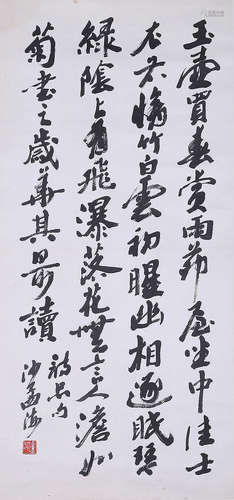 玉壺買春賞雨茆屋坐中佳士
左右脩竹白雲初晴幽鳥相逐眠琴
綠陰上有飛瀑落花無言人澹如
菊書之歲華其曰可讀
詩品句
沙孟海